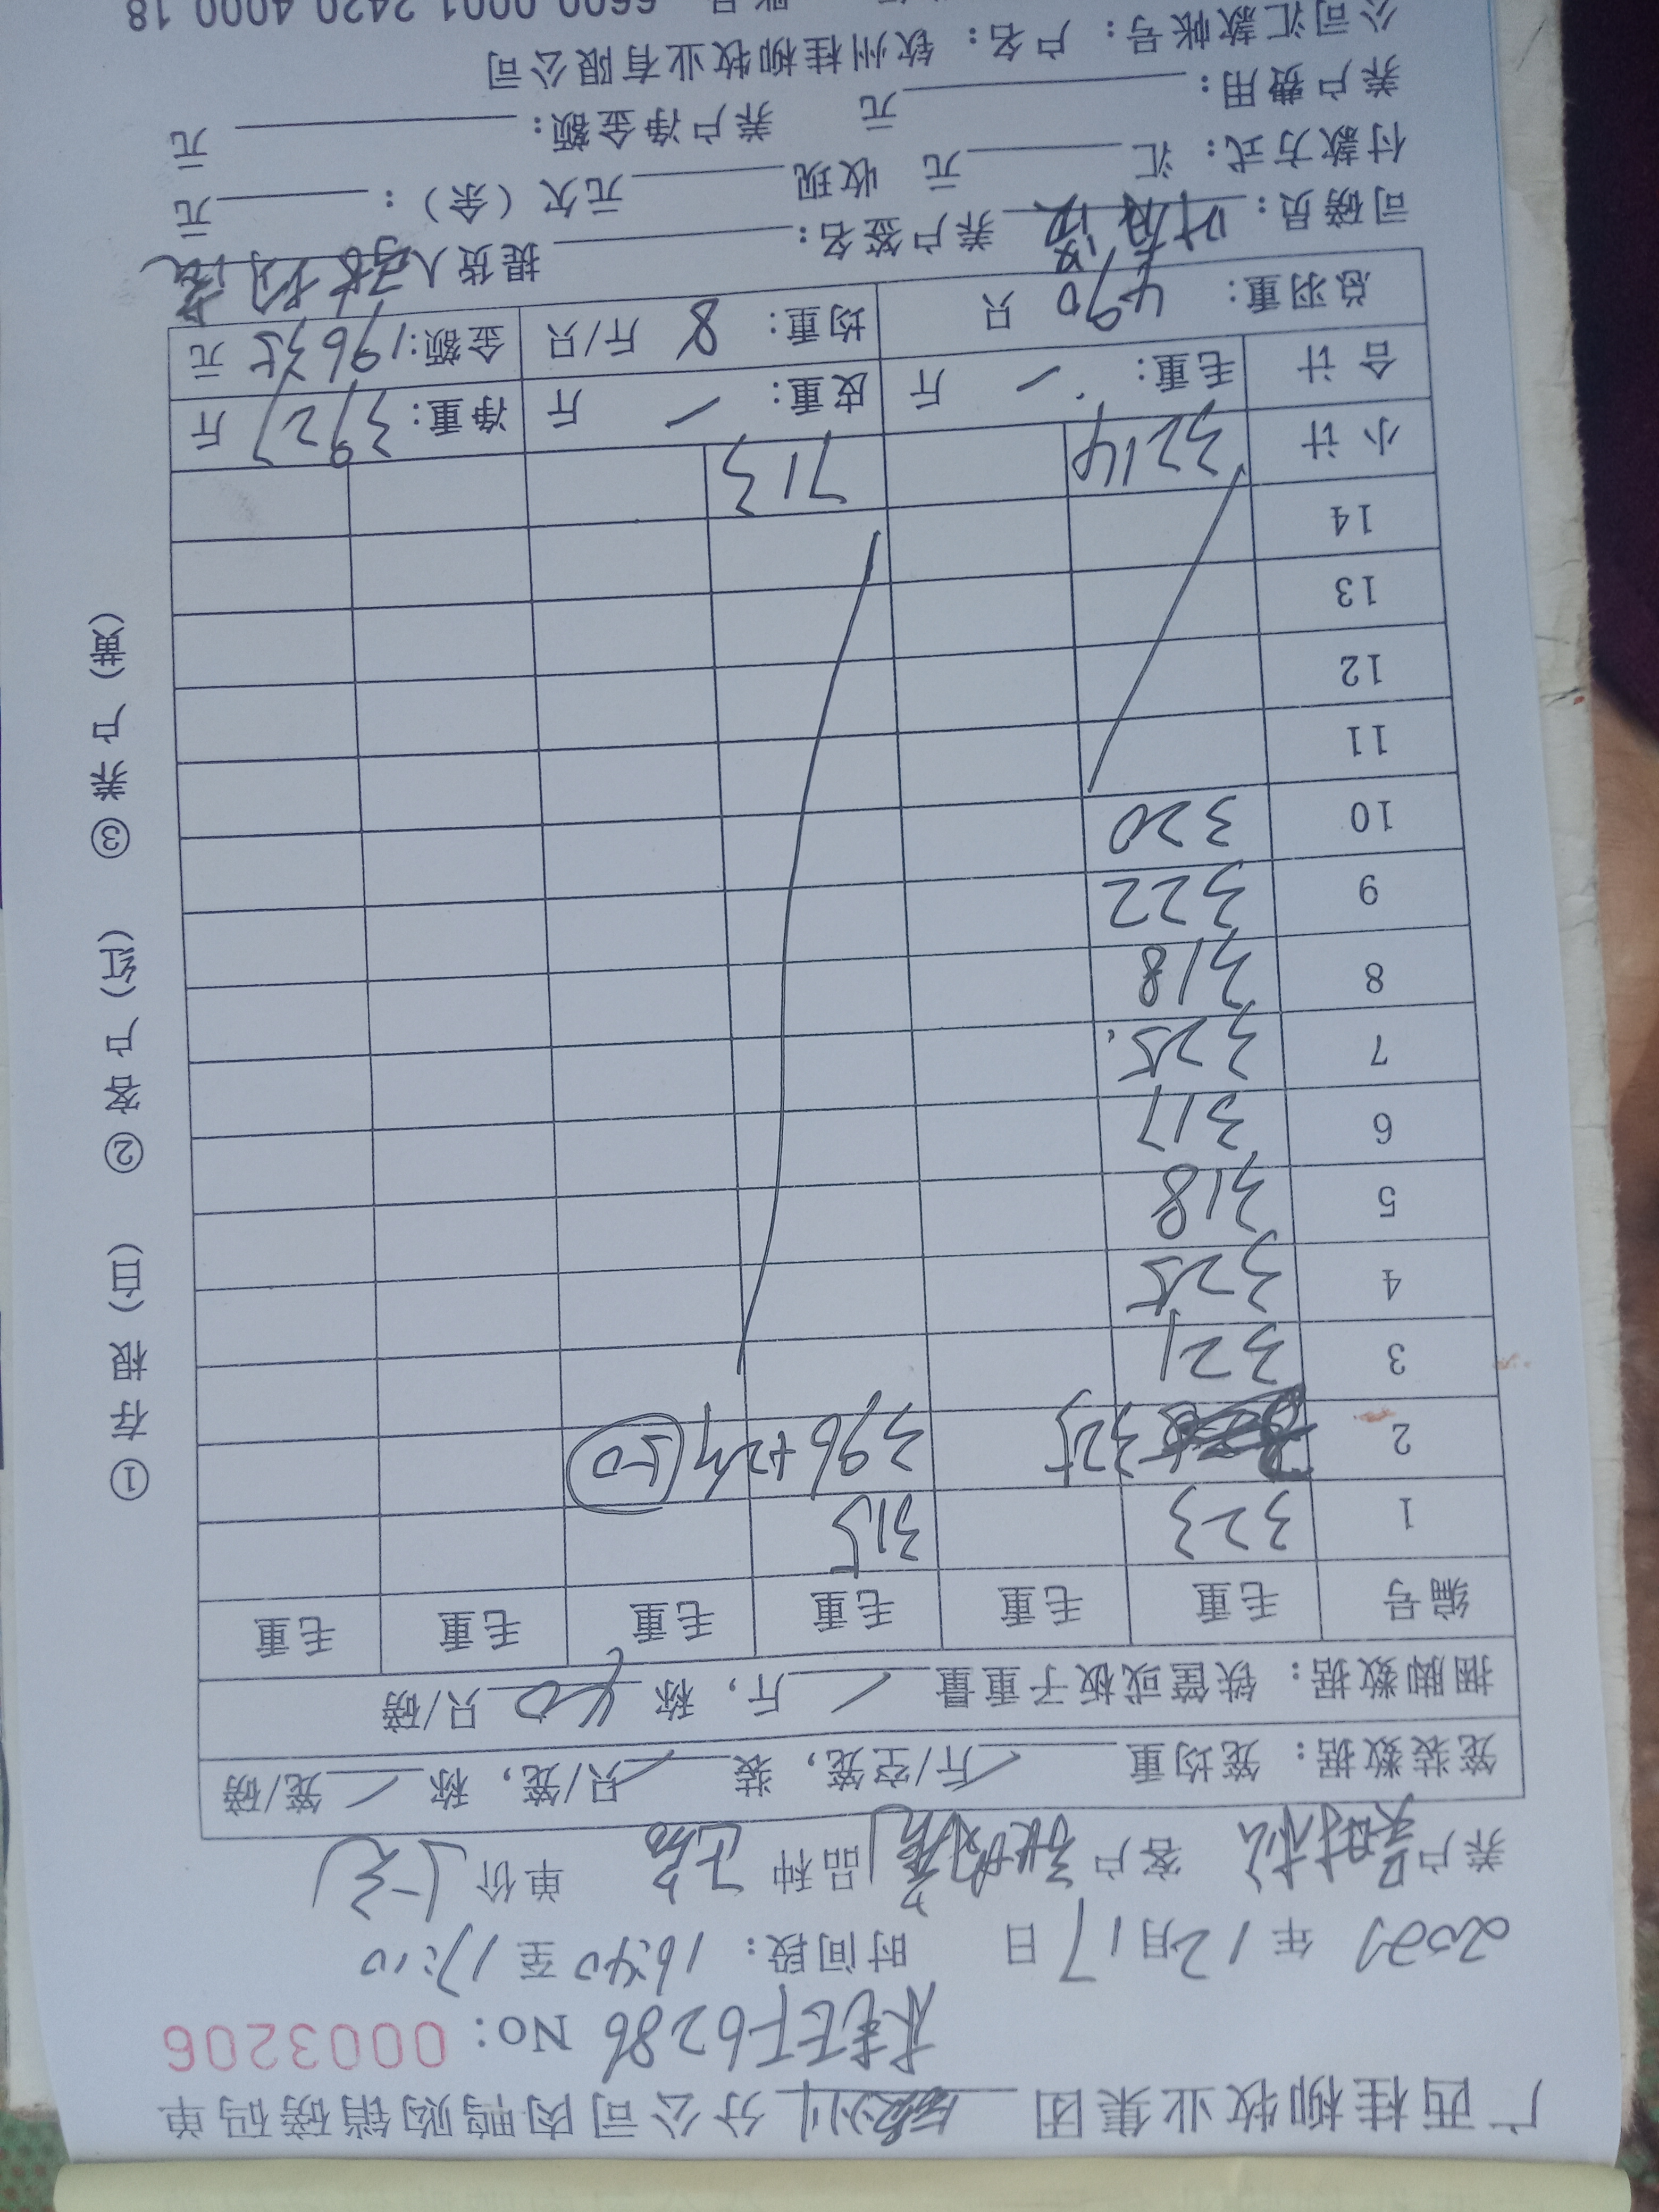 广西桂柳牧业集团 钦州 分公司肉鸭购销磅码单
F6286 No: 0003206
2021 年 12 月 17 日 时间段: 16:40 至 17:10
养户 客户 品种 单价
笼装数据: 笼均重 / 斤/空笼, 装 / 只/笼, 称 / 笼/磅
捆脚数据: 铁筐或板子重量 / 斤, 称 40 只/磅
编号 毛重 毛重 毛重 毛重 毛重 毛重
1 323 315
2 325 396+2 (50)
3 321
4 325
5 318
6 317
7 325.
8 318
9 322
10 320
11
12
13
14
小计 3214 713
合计 毛重: / 斤 皮重: / 斤 净重: 3927 斤
总羽重: 490 只 均重: 8 斤/只 金额: 19635 元
司磅员: 养户签名: 提货人
付款方式: 汇 元 收现 元欠(余): 元
养户费用: 元 养户净金额: 元
公司汇款帐号: 户名: 钦州桂柳牧业有限公司
账号 6600 0001 2420 4000 18
①存根(白) ②客户(红) ③养户(黄)